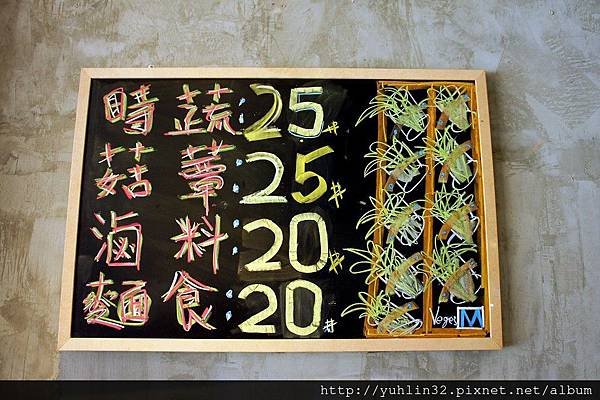 時 蔬:25#
菇 蕈:25#
滷 料:20#
麵 食:20#
Veges M
http://yuhlin32.pixnet.net/album